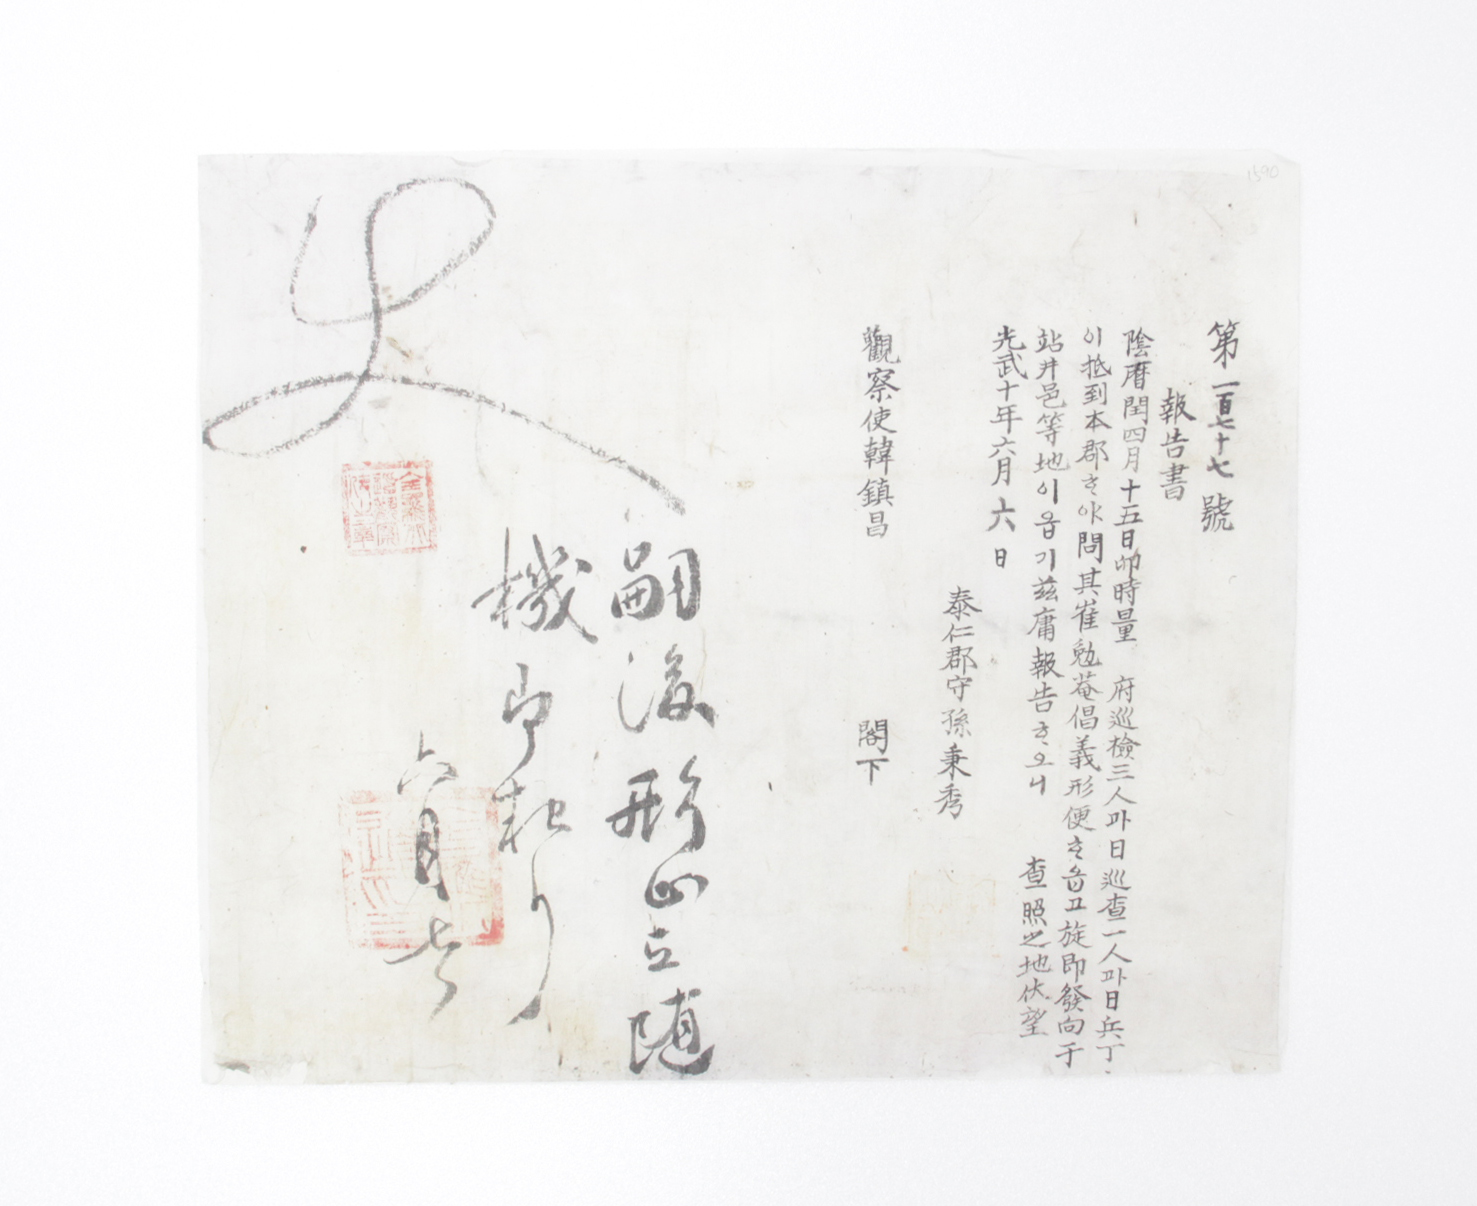 1590
第一百七十七號
報告書
陰曆閏四月十五日卯時量 府巡檢三人과日巡査一人과日兵丁
이抵到本郡ᄒᆞ야問其崔勉菴倡義形便ᄒᆞ옵고旋即發向于
站井邑等地이옵기玆庸報告ᄒᆞ오니 査照之地伏望
光武十年六月六日
泰仁郡守孫秉秀
觀察使韓鎭昌 閣下
嗣後形止立随
機即報
六月七